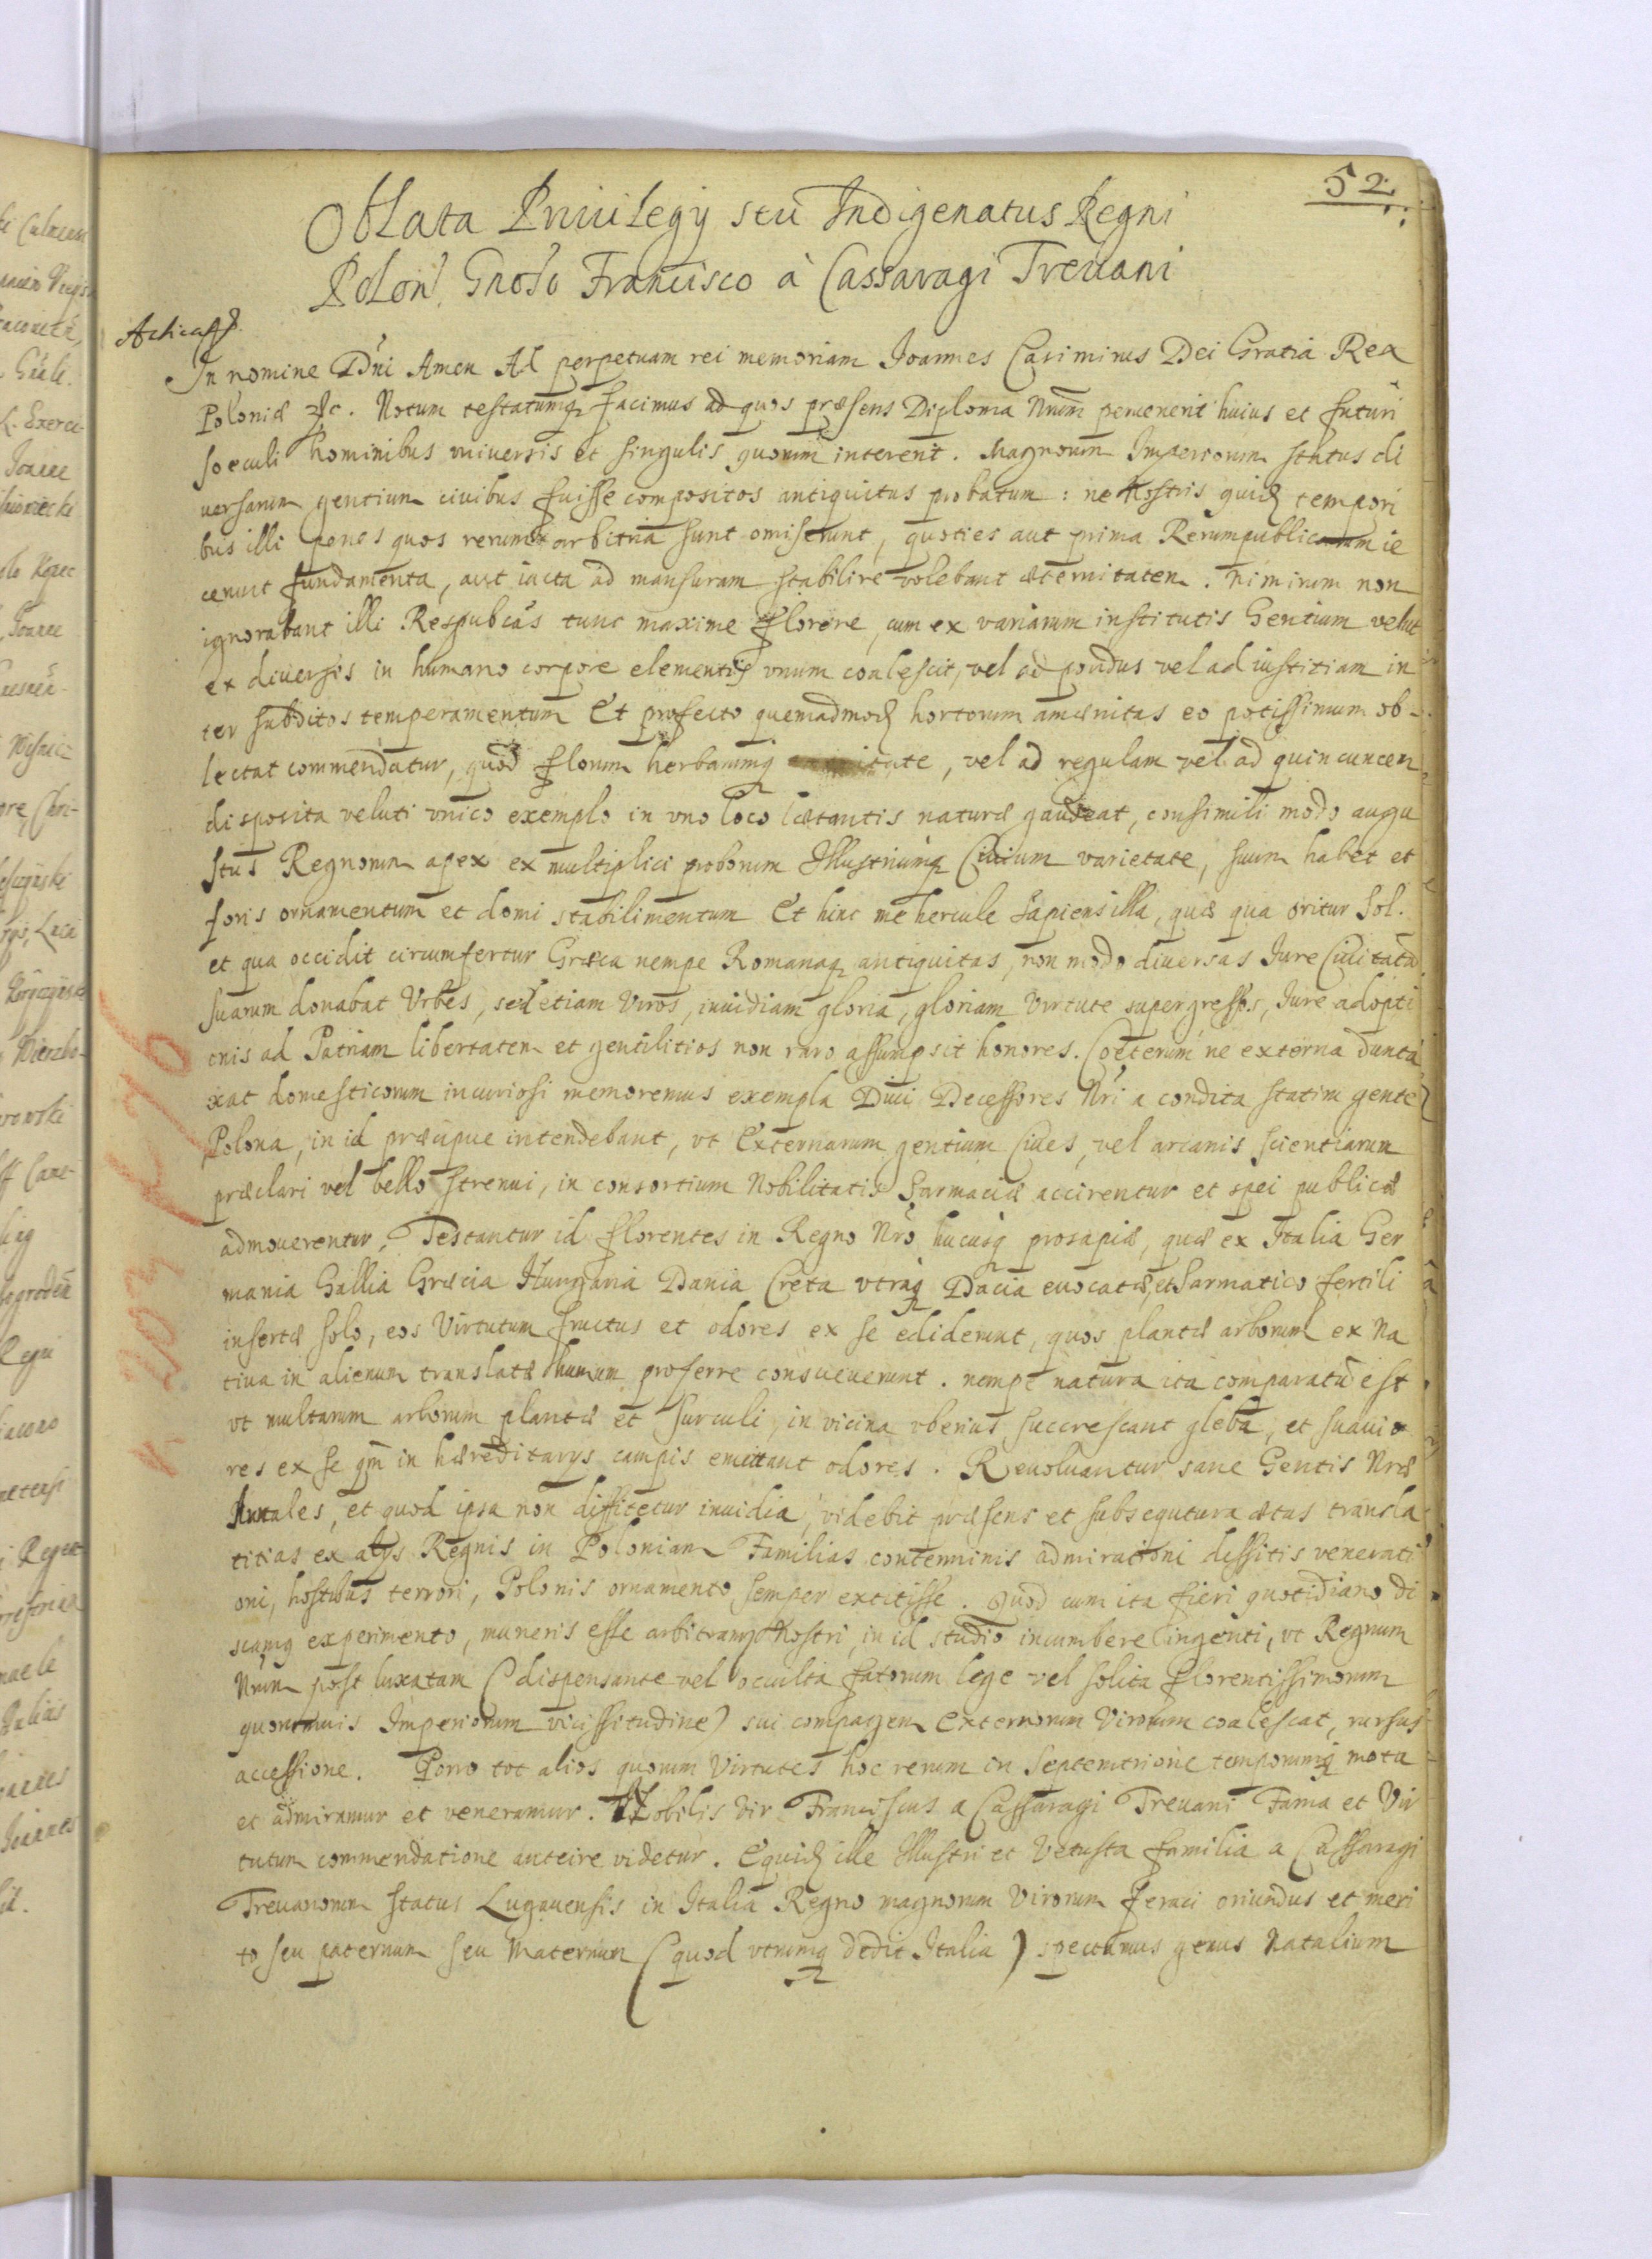 52.
Oblata Priuilegÿ seu Indigenatus Regni
Polon. Gnoso Francisco à Cassaragi Treuani
In nomine Dni Amen Ad perpetuam rei memoriam Joannes Casimirus Dei Gratia Rex
Poloniæ &c. Notum testatumq facimus ad quos præsens Diploma Nrum peruenerit huius et futuri
soeculi hominibus vniuersis et singulis quorum intererit. Magnorum Imperiorum status di
uersarum gentium ciuibus fuisse compositos antiquitus probatum: ne Nostris quid tempori
bus illi penes quos rerum arbitria sunt omiserunt, quoties aut prima Rerumpublicarum ie
cerunt fundamenta, aut iacta ad mansuram stabilire volebant æternitatem. Nimirum non
ignorabant illi Respubcas tunc maxime florere, cum ex variarum institutis Gentium velut
ex diuersis in humano corpore elementis vnum coalescit, vel ad pondus vel ad iustitiam in
ter subditos temperamentum Et profecto quemadmod hortorum amænitas eo potissimum ob-
lectat commendatur, quod florum herbarumq, vel ad regulam vel ad quincuncem
disposita veluti vnico exemplo in vno loco lætantis naturæ gaudeat, consimili modo augu
stus Regnorum apex ex multiplici proborum Illustriumq Ciuium varietate, suum habet et
foris ornamentum et domi stabilimentum Et hinc me hercule sapiens illa, quæ qua oritur Sol.
et qua occidit circumfertur Græca nempe Romanaq antiquitas, non modo diuersas Jure Ciuitatū
suarum donabat Vrbes, sed etiam Viros, inuidiam gloria, gloriam Virtute supergressos, Jure adopti
onis ad Patriam libertatem et gentilitios non raro assumpsit honores. Coeterum ne externa dunta
xat domesticorum incuriosi memoremus exempla Diui Decessores Nri a condita statim gente
Polona, in id præcipue intendebant, vt Externarum gentium Ciues, vel arcanis scientiarum
præclari vel bello strenui, in consortium Nobilitatis Sarmaciæ accirentur et spei publicæ
admouerentur, Testantur id florentes in Regno Nro hucusq prosapiæ, quæ ex Italia Ger
mania Gallia Græcia Hungaria Dania Creta vtraq Dacia euocatæ, et Sarmatico fertili
insertæ solo, eos Virtutum fructus et odores ex se ediderunt, quos plantæ arborum ex Na
tiua in alienum translatæ humum proferre consueuerunt. nempe natura ita comparatū est
vt multarum arborum plantæ et surculi, in vicina vberius succrescant gleba, et suauio
res ex se qm in hæreditarys campis emittant odores. Reuoluantur sane Gentis Nræ
Annales, et quod ipsa non diffitetur inuidia, videbit præsens et subsequtura ætas transla
titias ex alys Regnis in Poloniam Familias conterminis admirationi dissitis venerati
oni, hostibus terrori, Polonis ornamento semper extitisse. Quod cum ita fieri quotidiano di
scamq experimento, muneris esse arbitramq Nostri, in id studio incumbere ingenti, vt Regnum
Nrum post luxatam (dispensante vel occulta fatorum lege vel solita florentissimorum
quorumuis Imperiorum vicissitudine) sui compagem Externorum Virorum coalescat, rursus
accessione. Porro tot alios quorum Virtutes hoc rerum in Septemtrione temporumq motu
et admiramur et veneramur. Nobilis Vir Franciscus a Cassaragi Treuani Fama et Vir
tutum commendatione anteire videtur. Equid ille Illustri et Vetusta familia a Cassaragi
Treuanorum status Luganensis in Italia Regno magnorum Virorum feraci oriundus et meri
to seu paternum seu Maternum (quod vtrumq dedit Italia) spectamus genus Natalium